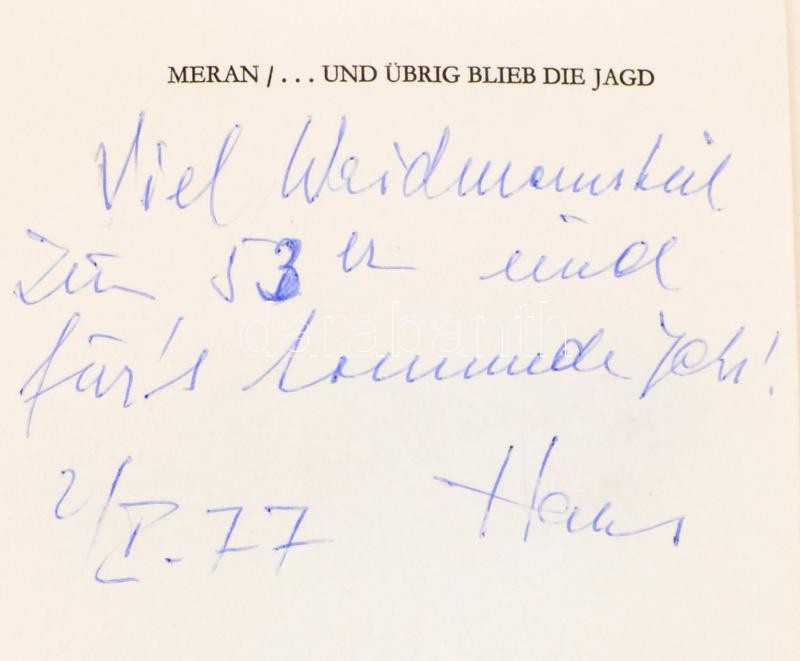 MERAN / . . . UND ÜBRIG BLIEB DIE JAGD
Viel Weidmannsheil
zum 53er und
für's kommende Jahr!
2/I. 77 Hans
darabanth